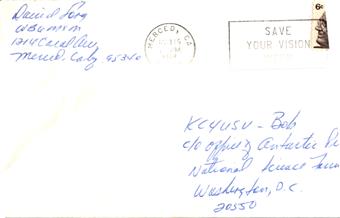 David Long
1214 Canal Ave
Merced, Calif 95340
MERCED, CA
PM
SAVE
YOUR VISION
6c
KC4USV - Bob
c/o Office of Antarctic
National Science
Washington, D.C.
20550